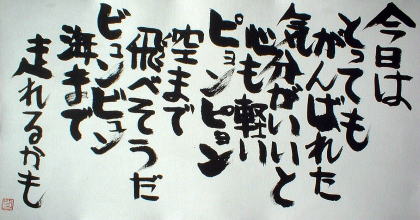 今日は
とっても
がんばれた
気分がいいと
心も軽い
ピョンピョン
空まで
飛べそうだ
ビュンビュン
海まで
走れるかも